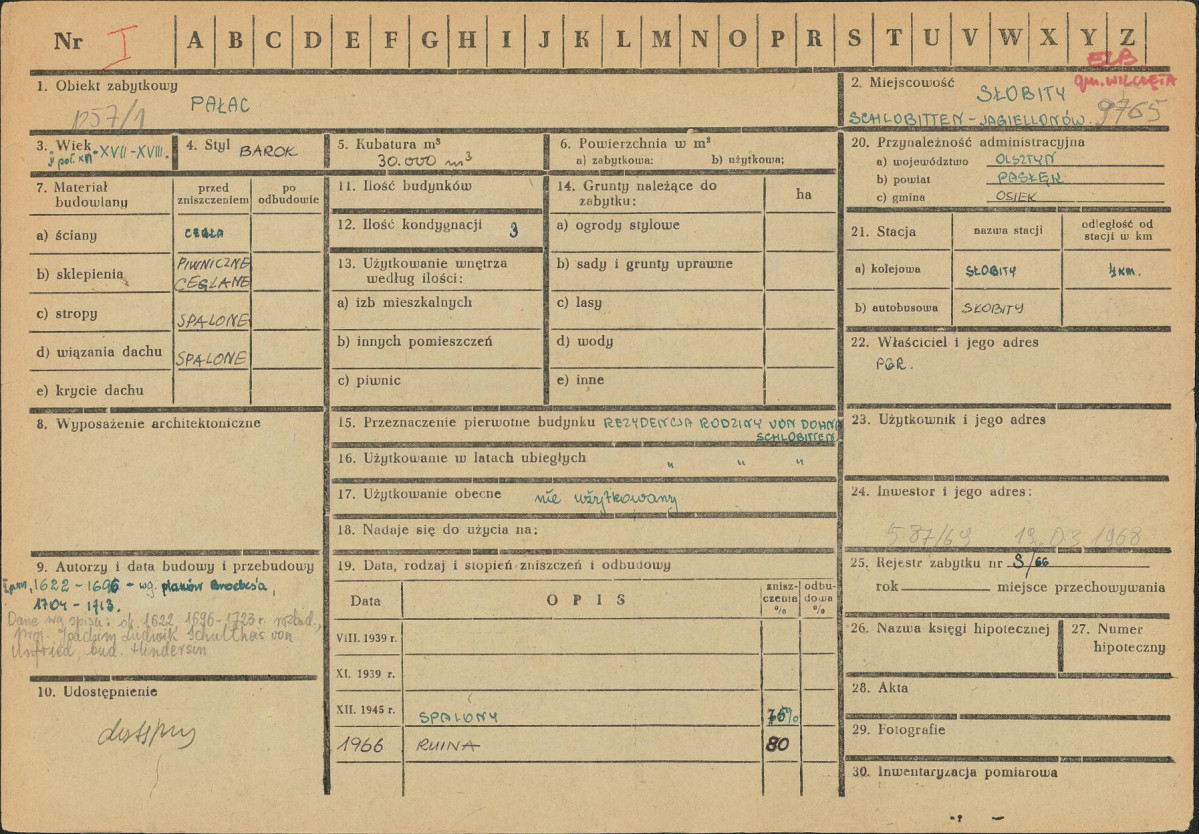 Nr I A B C D E F G H I J K L M N O P R S T U V W X Y Z
ELB
gm. WILCZĘTA
1. Obiekt zabytkowy
PAŁAC
1057/1
2. Miejscowość
SŁOBITY
SCHLOBITTEN - JAGIELLONÓW. 9765
3. Wiek
II poł. XVI - XVII - XVIII.
4. Styl BAROK
5. Kubatura m³
30.000 m³
6. Powierzchnia w m²
a) zabytkowa: b) użytkowa:
20. Przynależność administracyjna
a) województwo OLSZTYN
b) powiat PASŁĘK
c) gmina OSIEK
7. Materiał budowlany
przed zniszczeniem
po odbudowie
a) ściany CEGŁA
b) sklepienia PIWNICZNE
CEGLANE
c) stropy SPALONE
d) wiązania dachu SPALONE
e) krycie dachu
11. Ilość budynków
12. Ilość kondygnacji 3
13. Użytkowanie wnętrza
według ilości:
a) izb mieszkalnych
b) innych pomieszczeń
c) piwnic
14. Grunty należące do
zabytku:
ha
a) ogrody stylowe
b) sady i grunty uprawne
c) lasy
d) wody
e) inne
21. Stacja
nazwa stacji
odległość od
stacji w km
a) kolejowa SŁOBITY ½ km.
b) autobusowa SŁOBITY
22. Właściciel i jego adres
PGR.
8. Wyposażenie architektoniczne
15. Przeznaczenie pierwotne budynku REZYDENCJA RODZINY VON DOHNA
SCHLOBITTEN
16. Użytkowanie w latach ubiegłych " " "
17. Użytkowanie obecne nie użytkowany
18. Nadaje się do użycia na:
23. Użytkownik i jego adres
24. Inwestor i jego adres:
587/69 12.03.1968
25. Rejestr zabytku nr S/66
rok miejsce przechowywania
9. Autorzy i data budowy i przebudowy
1622 - 1696 - wg. planów Brodes'a,
1704 - 1713.
Dane wg spisu: ok. 1622, 1696-1723 r. rozbud.,
proj. Joachim Ludwik Schulthes von
Unfried, bud. Hindersin
19. Data, rodzaj i stopień zniszczeń i odbudowy
Data
O P I S
znisz-
czenia
%
odbu-
dowa
%
VIII. 1939 r.
XI. 1939 r.
XII. 1945 r. SPALONY 75%
1966 RUINA 80
26. Nazwa księgi hipotecznej
27. Numer
hipoteczny
10. Udostępnienie
dostępny
28. Akta
29. Fotografie
30. Inwentaryzacja pomiarowa